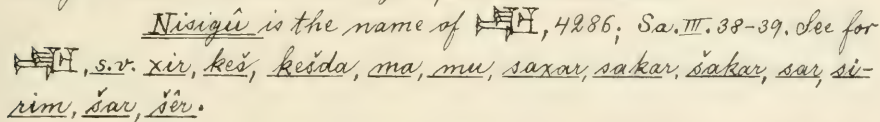 Nisigû is the name of 𒊬, 4286; Sa. III. 38-39. See for
𒊬, s.v. xir, keš, kešda, ma, mu, saxar, sakar, šakar, sar, si-
rim, šar, šêr.